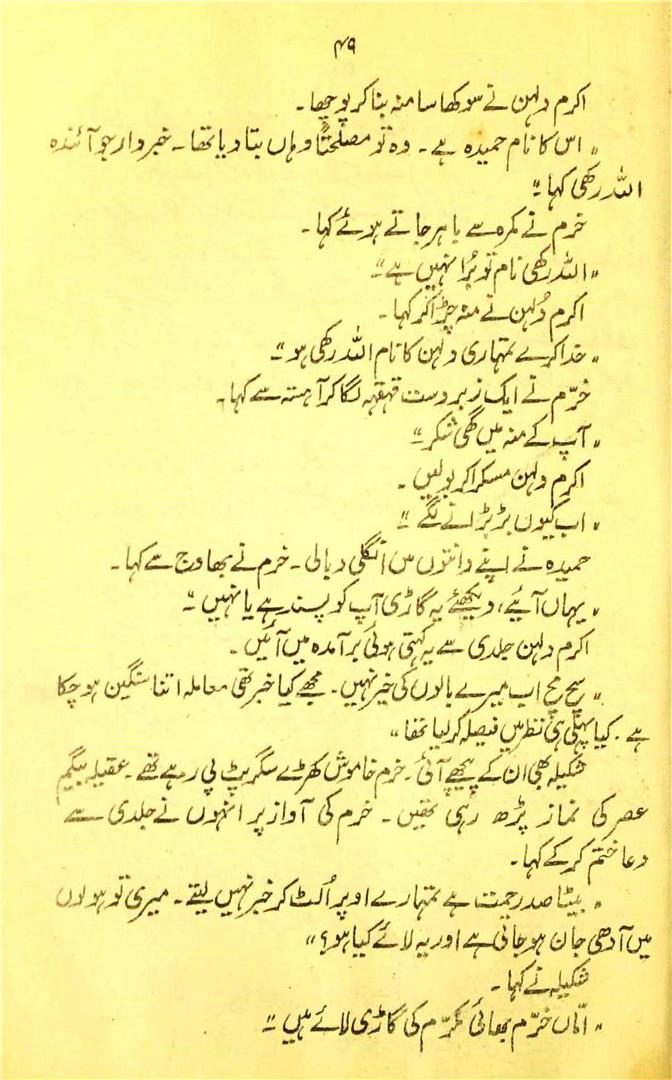 ۴۹
اکرم دلہن نے سوکھا سا منہ بنا کر پوچھا۔
"اس کا نام حمیدہ ہے۔ وہ تو مصلحتاً وہاں بتا دیا تھا۔ خبردار جو آئندہ
اللہ رکھی کہا"۔
خرم نے کمرہ سے باہر جاتے ہوئے کہا۔
"اللہ رکھی نام تو بُرا نہیں ہے"۔
اکرم دُلہن نے منہ چڑا کر کہا۔
"خدا کرے تمہاری دلہن کا نام اللہ رکھی ہو"۔
خرّم نے ایک زبردست قہقہہ لگا کر آہستہ سے کہا۔
"آپ کے منہ میں گھی شکر"۔
اکرم دلہن مسکرا کر بولیں۔
"اب کیوں بڑبڑانے لگے"۔
حمیدہ نے اپنے دانتوں میں انگلی دبالی۔ خرم نے بھاوج سے کہا۔
"یہاں آئیے، دیکھئے یہ گاڑی آپ کو پسند ہے یا نہیں"۔
اکرم دلہن جلدی سے یہ کہتی ہوئی برآمدہ میں آئیں۔
"سچ مچ اب میرے بالوں کی خیر نہیں۔ مجھے کیا خبر تھی معاملہ اتنا سنگین ہو چکا
ہے۔ کیا پہلی ہی نظر میں فیصلہ کر لیا تھا"
شکیلہ بھی ان کے پیچھے آئی۔ خرم خاموش کھڑے سگریٹ پی رہے تھے۔ عقیلہ بیگم
عصر کی نماز پڑھ رہی تھیں۔ خرم کی آواز پر انہوں نے جلدی سے
دعا ختم کر کے کہا۔
"بیٹا صد رحمت ہے تمہارے اوپر اُلٹ کر خبر نہیں لیتے۔ میری تو ہولوں
میں آدھی جان ہو جاتی ہے اور یہ لائے کیا ہو؟"
شکیلہ نے کہا۔
"امّاں خرّم بھائی مکرّم کی گاڑی لائے ہیں"۔